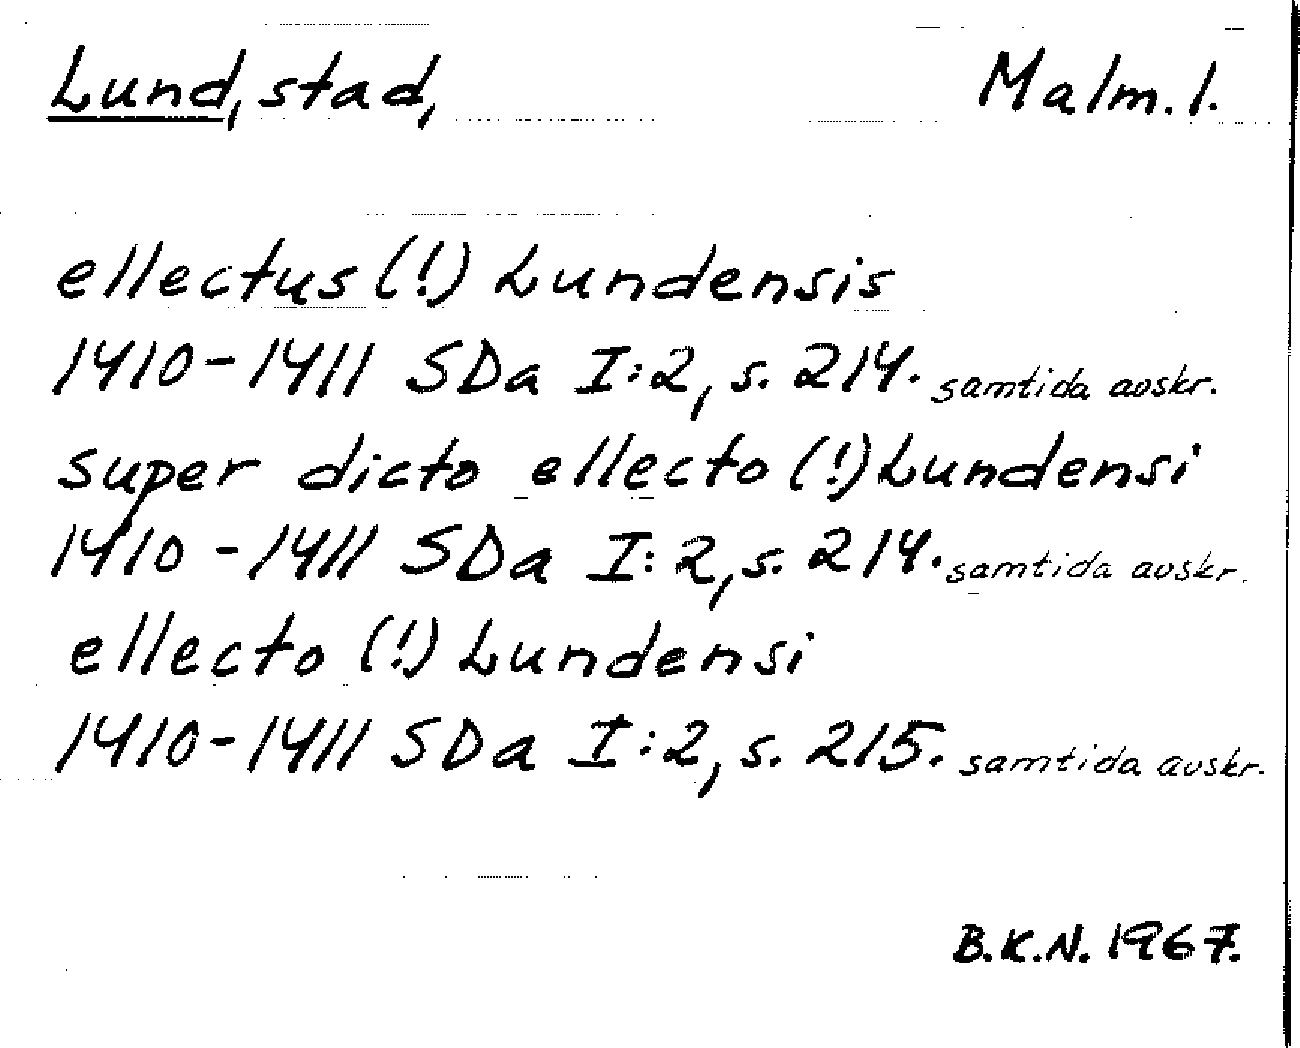 Lund, stad, Malm. l.
ellectus (!) Lundensis
1410-1411 SDa I:2, s. 214. samtida avskr.
super dicto ellecto (!) Lundensi
1410-1411 SDa I:2, s. 214. samtida avskr.
ellecto (!) Lundensi
1410-1411 SDa I:2, s. 215. samtida avskr.
B.K.N. 1967.